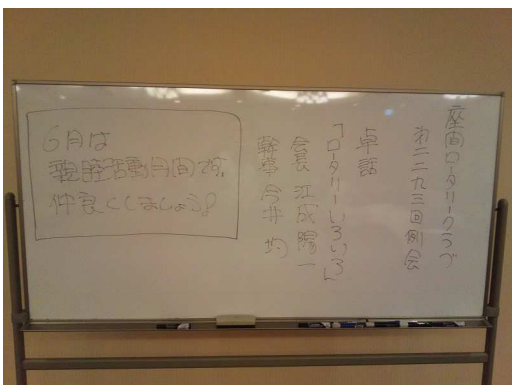 座間ロータリークラブ
第二二九三回例会
卓話
「ロータリーいろいろ」
会長 江成陽一
幹事 今井 均
6月は
親睦活動月間です。
仲良くしましょう!